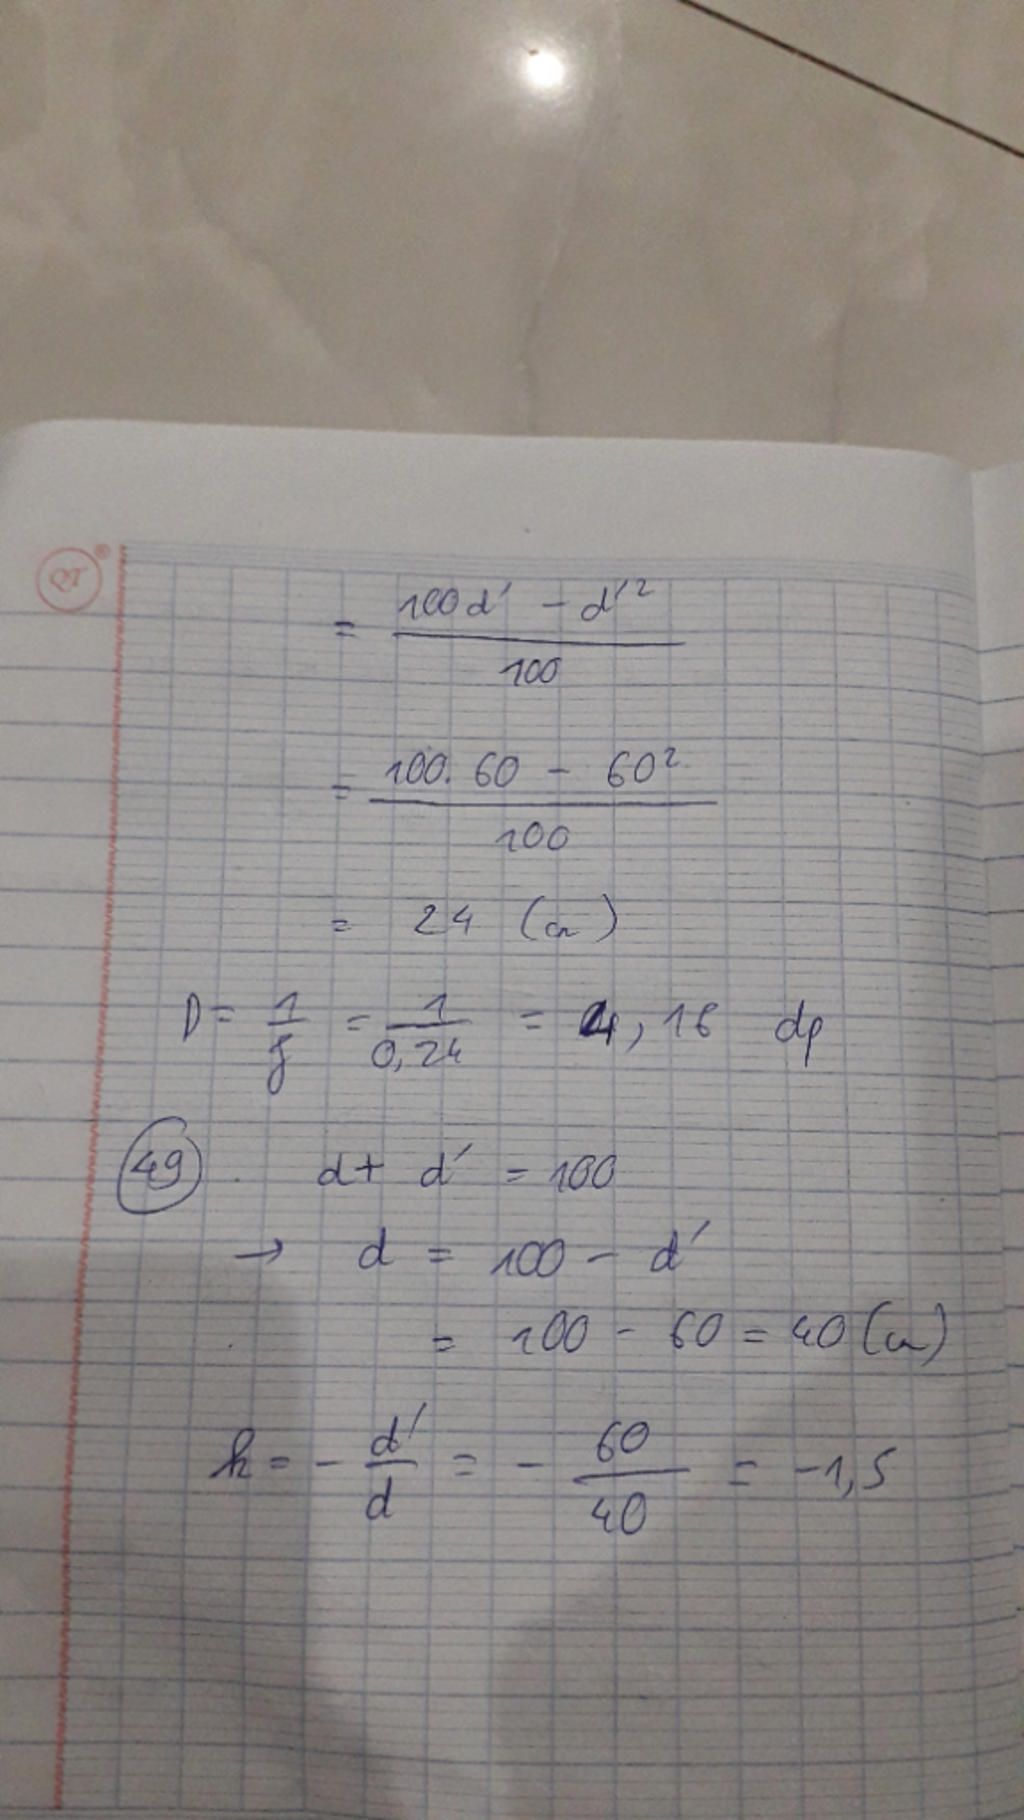 QT ®
= (100d' - d'²) / 100
= (100. 60 - 60²) / 100
= 24 (cm)
D = 1/f = 1/0,24 = 4,16 dp
49 . d + d' = 100
→ d = 100 - d'
= 100 - 60 = 40 (cm)
k = - d'/d = - 60/40 = -1,5